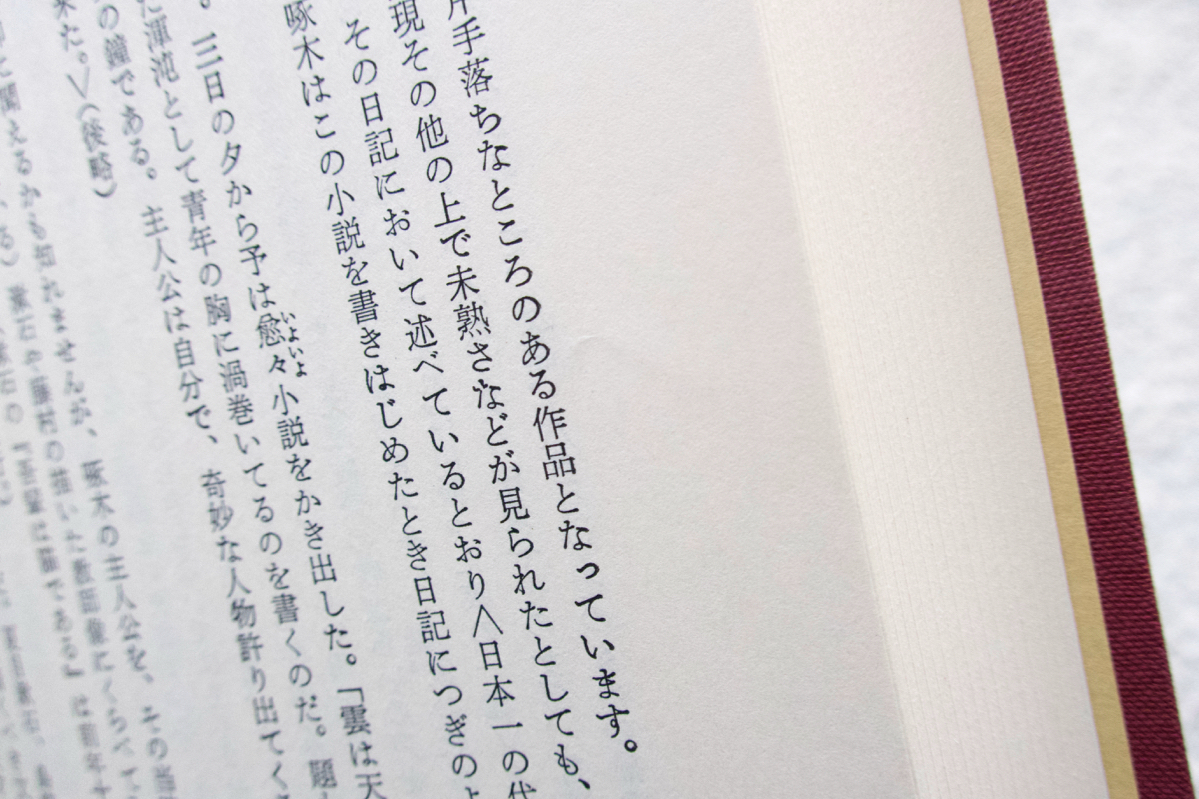 手落ちなところのある作品となっています。
現その他の上で未熟さなどが見られたとしても、
その日記において述べているとおり〈日本一の代
啄木はこの小説を書きはじめたとき日記につぎのよ
。三日の夕から予は愈々小説をかき出した。「雲は天
いよいよ
渾沌として青年の胸に渦巻いてるのを書くのだ。題
の鐘である。主人公は自分で、奇妙な人物許り出てく
た。〉(後略)
聞えるかも知れませんが、啄木の主人公を、その当
漱石や藤村の描いた